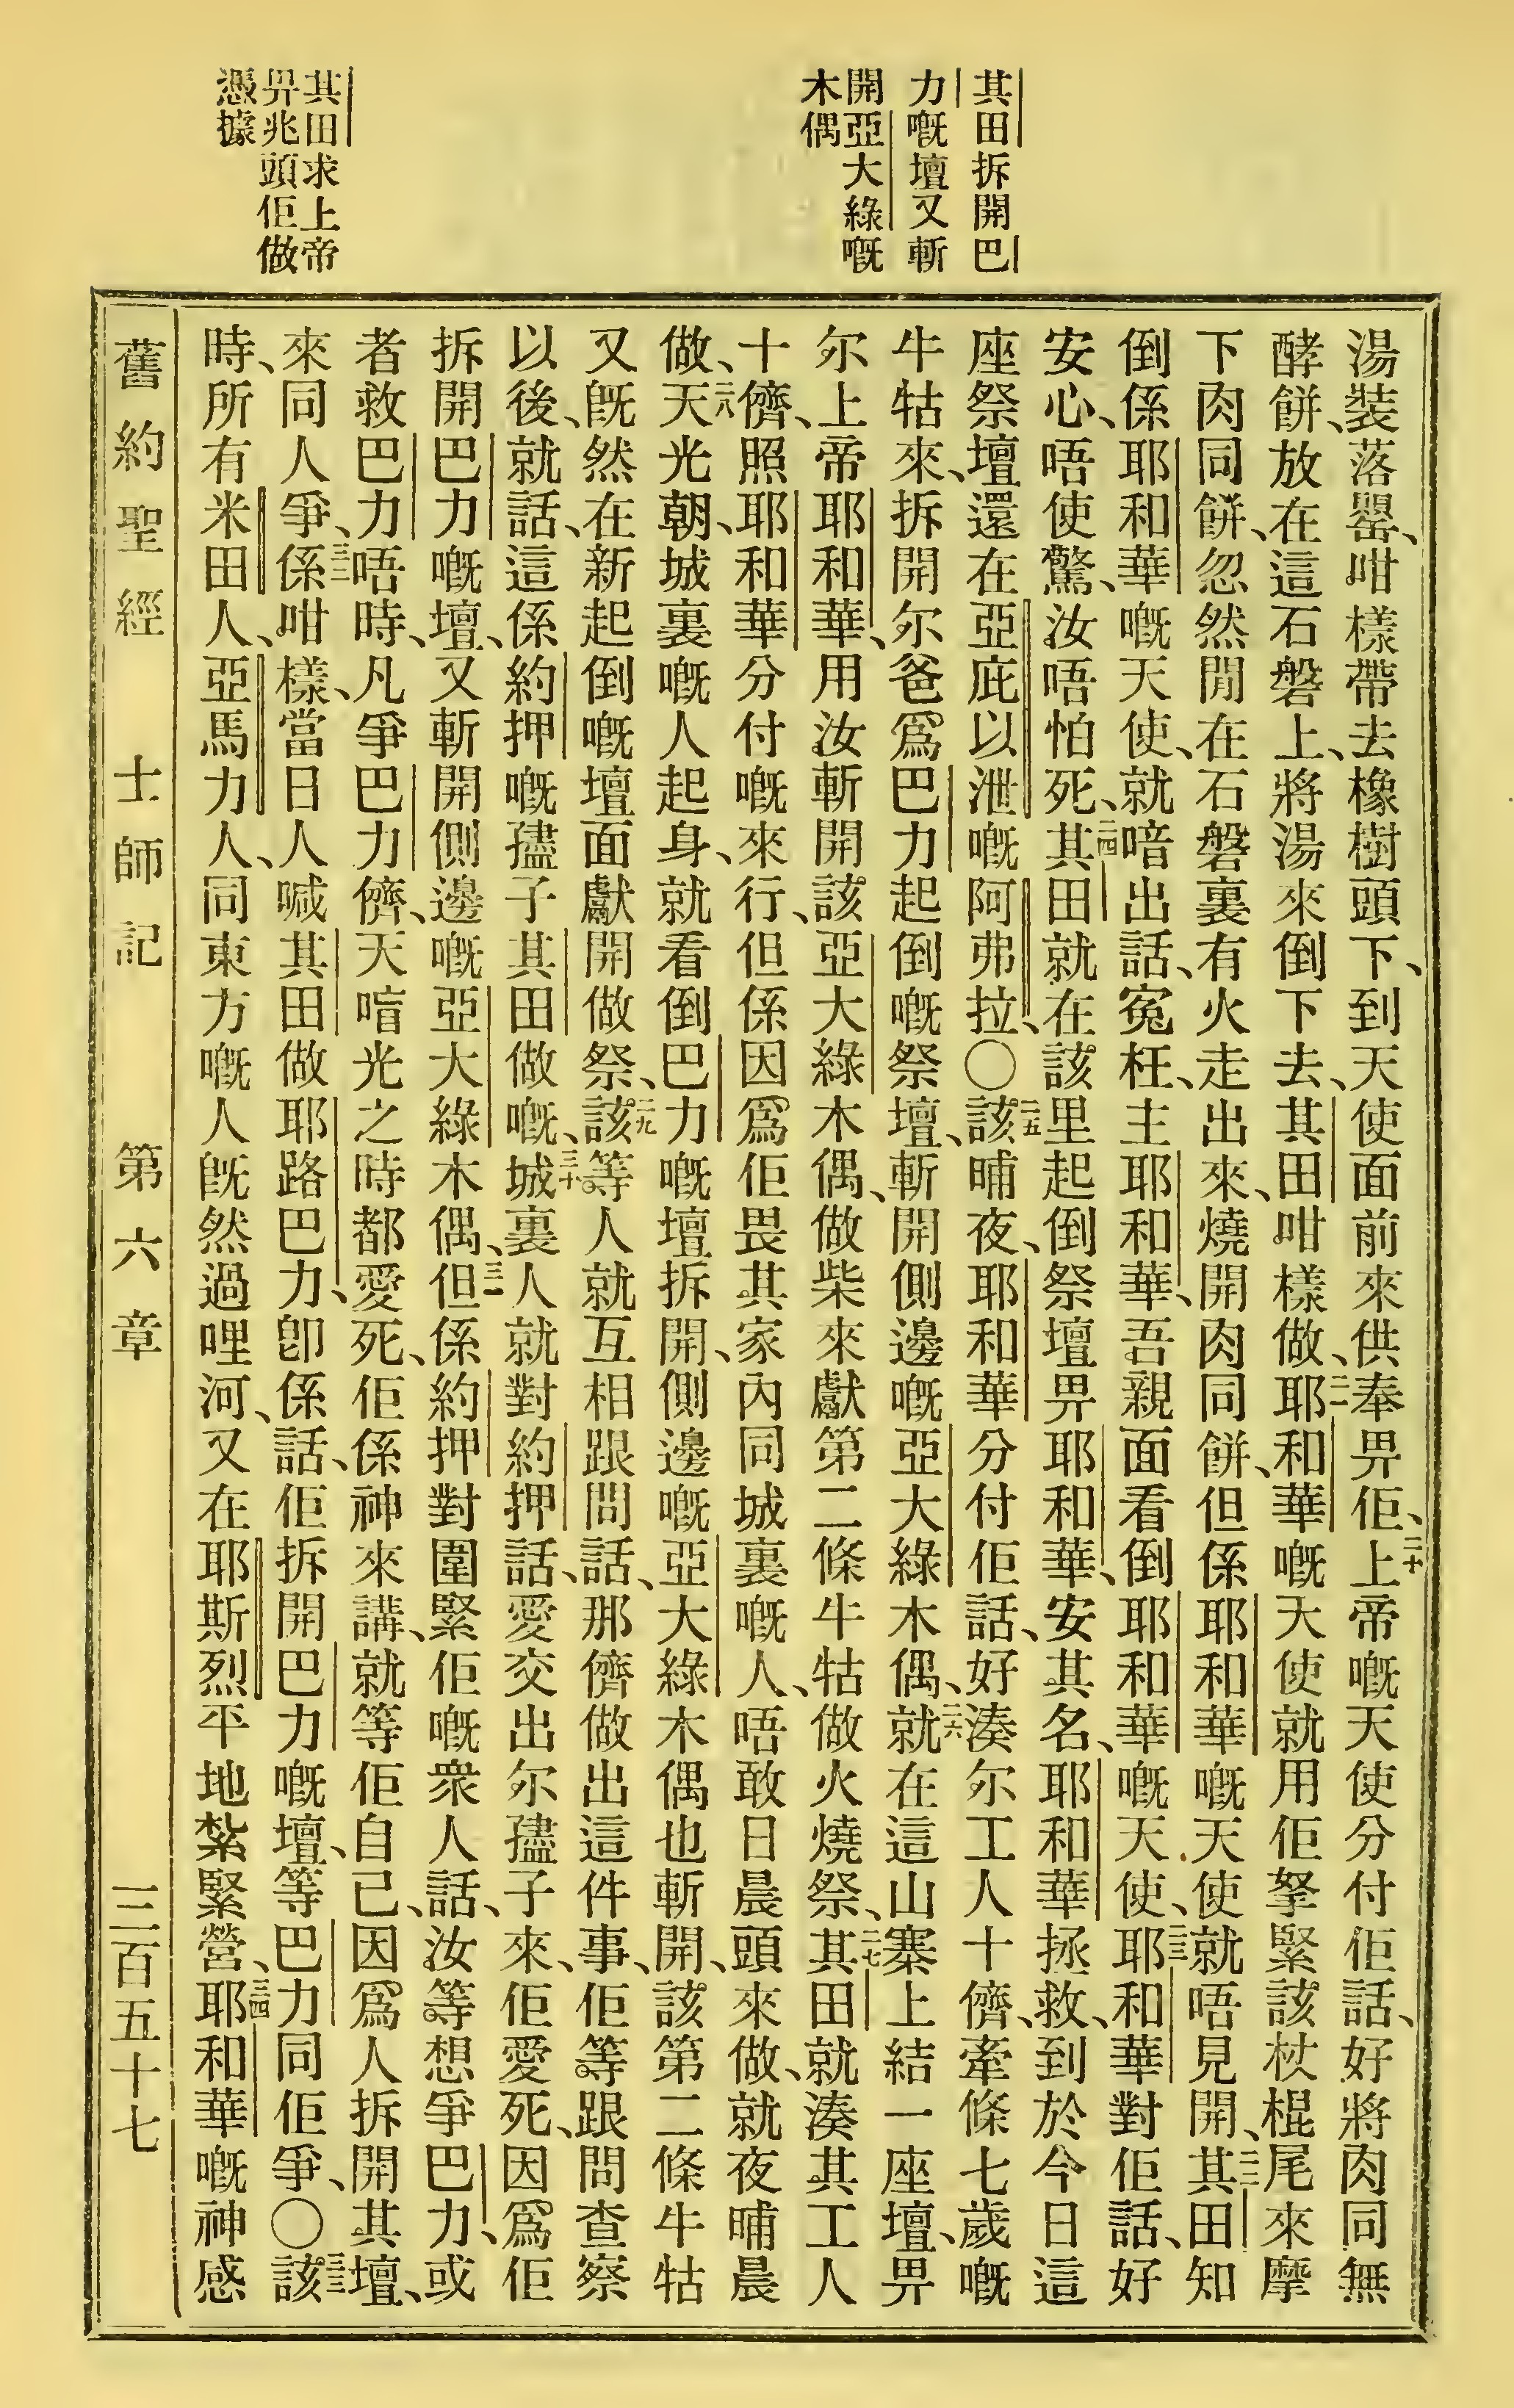 其田拆開巴
力嘅壇又斬
開亞大綠嘅
木偶
其田求上帝
畀兆頭佢做
憑據
湯裝落罌、咁樣帶去橡樹頭下、到天使面前來供奉畀佢、二十上帝嘅天使分付佢話、好將肉同無
酵餅、放在這石磐上、將湯來倒下去、其田咁樣做、二一耶和華嘅天使就用佢拏緊該杖棍尾來摩
下肉同餅、忽然閒在石磐裏有火走出來、燒開肉同餅、但係耶和華嘅天使就唔見開、二二其田知
倒係耶和華嘅天使、就喑出話、寃枉、主耶和華、吾親面看倒耶和華嘅天使、二三耶和華對佢話、好
安心、唔使驚、汝唔怕死、二四其田就在該里起倒祭壇畀耶和華、安其名、耶和華拯救、到於今日這
座祭壇還在亞庇以泄嘅阿弗拉、〇二五該晡夜、耶和華分付佢話、好湊尔工人十儕、牽條七歲嘅
牛牯來、拆開尔爸爲巴力起倒嘅祭壇、斬開側邊嘅亞大綠木偶、二六就在這山寨上結一座壇、畀
尔上帝耶和華、用汝斬開該亞大綠木偶、做柴來獻第二條牛牯做火燒祭、二七其田就湊其工人
十儕、照耶和華分付嘅來行、但係因爲佢畏其家內同城裏嘅人、唔敢日晨頭來做、就夜晡晨
做、二八天光朝、城裏嘅人起身、就看倒巴力嘅壇拆開、側邊嘅亞大綠木偶也斬開、該第二條牛牯
又旣然在新起倒嘅壇面獻開做祭、二九該等人就互相跟問話、那儕做出這件事、佢等跟問查察
以後、就話、這係約押嘅孻子其田做嘅、三十城裏人就對約押話、愛交出尔孻子來、佢愛死、因爲佢
拆開巴力嘅壇、又斬開側邊嘅亞大綠木偶、三一但係約押對圍緊佢嘅衆人話、汝等想爭巴力、或
者救巴力唔時、凡爭巴力儕、天喑光之時都愛死、佢係神來講、就等佢自己、因爲人拆開其壇、
來同人爭、三二係咁樣、當日人喊其田做耶路巴力、卽係話、佢拆開巴力嘅壇、等巴力同佢爭、〇三三該
時、所有米田人、亞馬力人、同東方嘅人旣然過哩河、又在耶斯烈平地紮緊營、三四耶和華嘅神感
舊約聖經　士師記　第六章　三百五十七